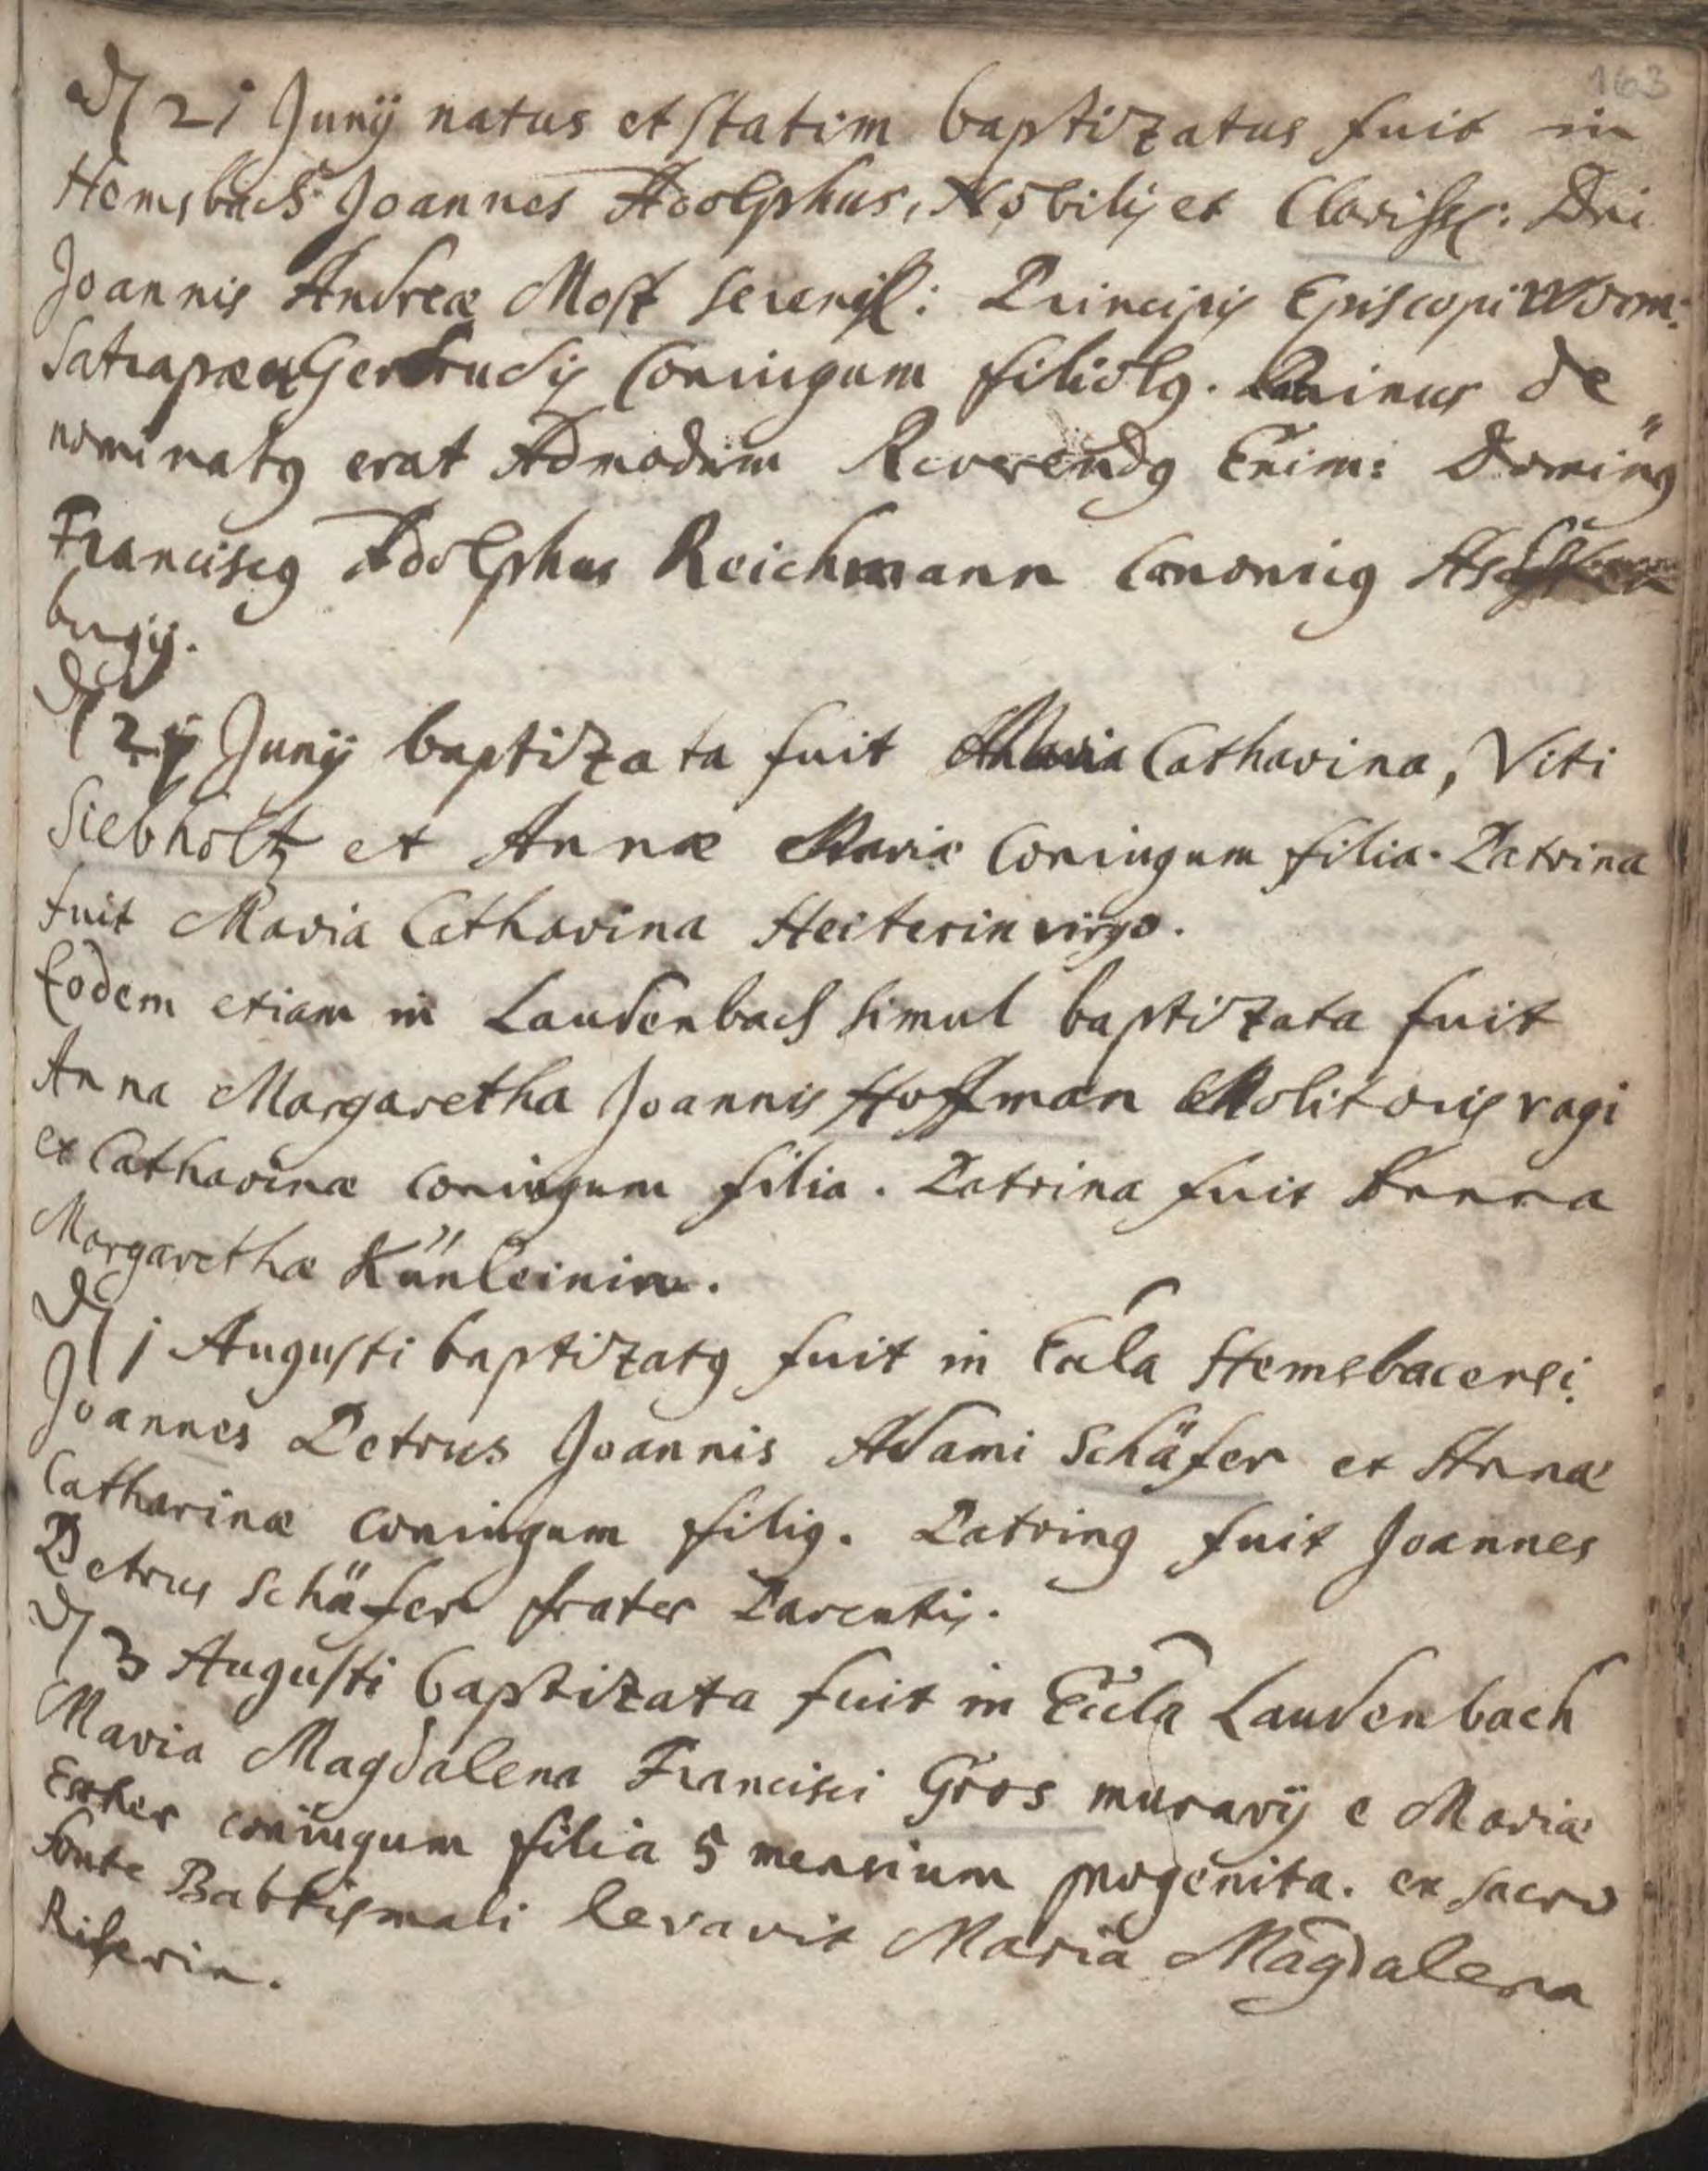 163
d 21 Junij natus et statim baptizatus fuit in
Hemsbach Joannes Adolphus, Nobilis et Clariss: Dni
Joannis Andreæ Most sereniss: Principis Episcopi Worm:
Satrapæ et Gertrudis Coniugum filiolus. de
nominatus erat Admodum Reverendus Dominus
Franciscus Adolphus Reichmann Canonicus
burgij.
d 24 Junij baptizata fuit Maria Catharina, Viti
Siebholtz et Annæ Mariæ Coniugum filia. Patrina
fuit Maria Catharina Heiterin virgo.
Eodem etiam in Laudenbach simul baptizata fuit
Anna Margaretha Joannis Hoffman Molitoris pagi
et Catharinæ coniugum filia. Patrina fuit Anna
Margaretha Künleinin.
d 1 Augusti baptizatus fuit in Eccla Hemsbacensi
Joannes Petrus Joannis Adami Schäfer et Annæ
Catharinæ coniugum filius. Patrinus fuit Joannes
Petrus Schäfer frater Parentis.
d 3 Augusti baptizata fuit in Eccla Laudenbach
Maria Magdalena Francisci Gros murarij e Mariæ
Esther coniugum filia 5 mensium progenita. ex sacro
fonte Babtismali levavit Maria Magdalena